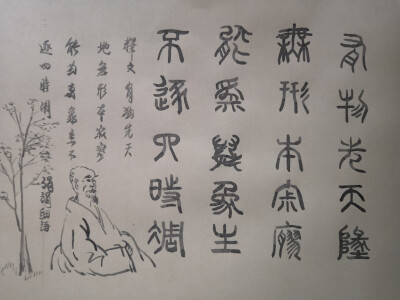 有物先天墬
無形本寂廖
能為萬象主
不逐四時凋
釋文有物先天
地無形本寂寥
能為萬象主不
逐四時凋